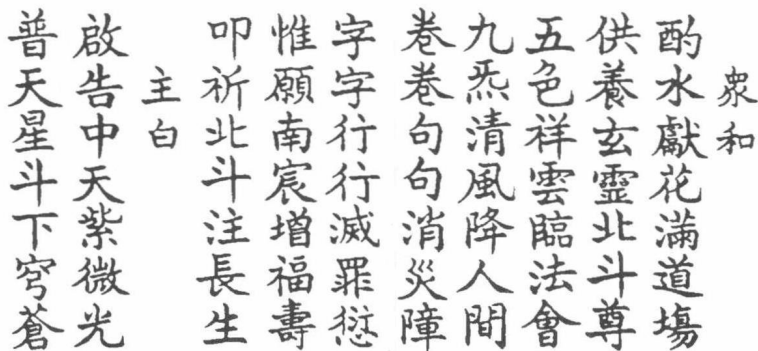 衆和
酌水獻花滿道場
供養玄靈北斗尊
五色祥雲臨法會
九炁清風降人間
卷卷句句消災障
字字行行滅罪愆
惟願南宸增福壽
叩祈北斗注長生
主白
啟告中天紫微光
普天星斗下穹蒼